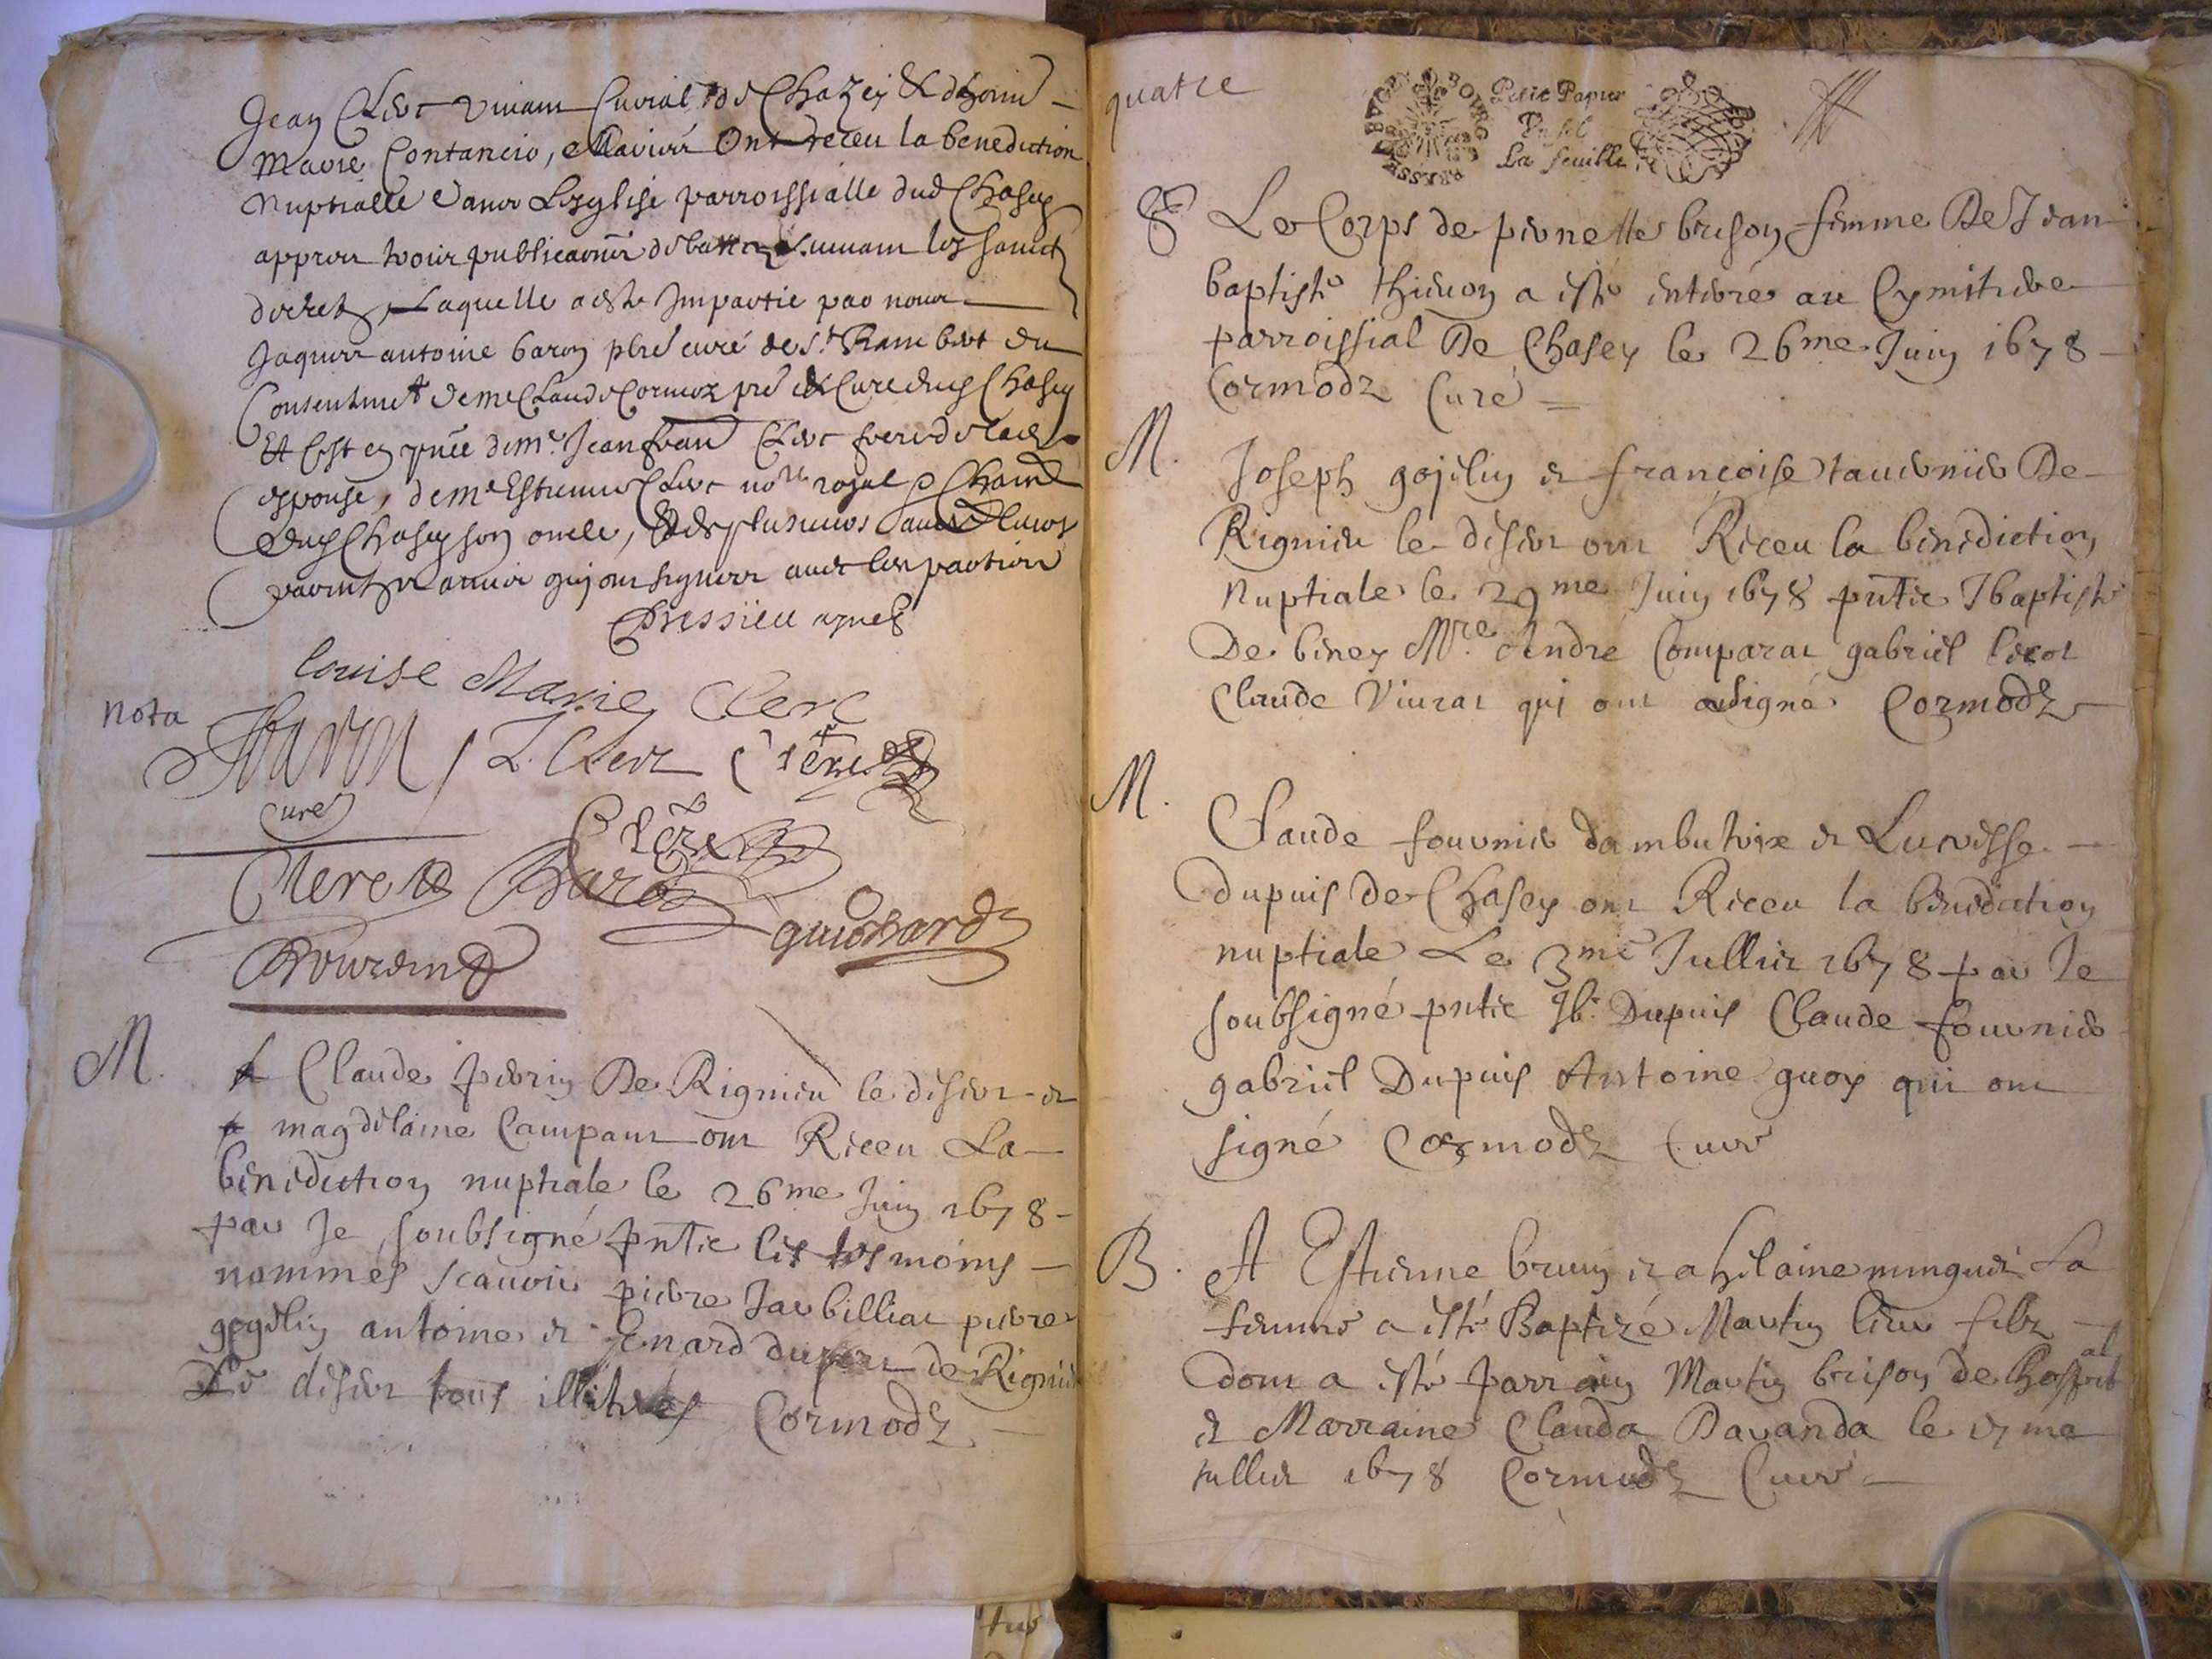 Jean Clerc vivant Curial de Chazey & d'honn
Marie Contancin, Mariés Ont receu la benediction
Nuptialle dans L'Esglise parroissialle dud Chasey
appres trois publicaons de suivant les saincts
decretz, Laquelle a esté Impartie par nous
Jaques antoine baron pbre curé de St Rambert du
Consentmet de me Claude Cormoz pre & Curé dud Chasey
Et C'est en pnce de me Jean fran Clerc frere de lad
espouse, de me Estienne Clerc note royal & Chatn
dud Chasey son oncle, & de plusieurs autres leurs
parents & amis qui ont signez avec les parties
Dressieu agnes
Louise Marie Clerc
Nota
Baron L. Clerc Clerc
Curé
Clerc
Clerc Baron
guichard
M. Claude perrin De Rignieu le desert et
magdelaine Campant ont Receu La
benediction nuptiale le 26me Juin 1678
par Je soubsigné pntie les tesmoins
nommes scauoir pierre Jacbilliat pierre
gogelin antoine et Jenard de Rignieu
Le desert tous illiteres Cormodz
quatre
BOVRG BRESSE BVGEY
Petit Papier
Un sol
La feuille
Le Corps de pernette brison femme De Jean
baptiste thieuon a esté enterré au Cymitiere
parroissial De Chasey le 26me Juin 1678
Cormodz Curé
M. Joseph gojelin et francoise tauernier De
Rignieu le desert ont Receu la benediction
Nuptiale le 29me Juin 1678 pntie Jbaptiste
De biney Mre André Comparat gabriel
Claude Viurat qui ont signé Cormodz
M.
Claude fournier dambutrix et Lucresse
dupuis de Chasey ont Receu la benediction
nuptiale Le 3me Jullier 1678 par Je
soubsigné pntie Jb. Dupuis Claude fournier
gabriel Dupuis Antoine guoy qui ont
signé Cormodz Curé
B. A Estienne brun et a helaine minguet La
femme a esté Baptizé Martin leur filz
dont a esté parrain Martin brison de
et Marraine Clauda Dauanda le 17me
Jullier 1678 Cormodz Curé